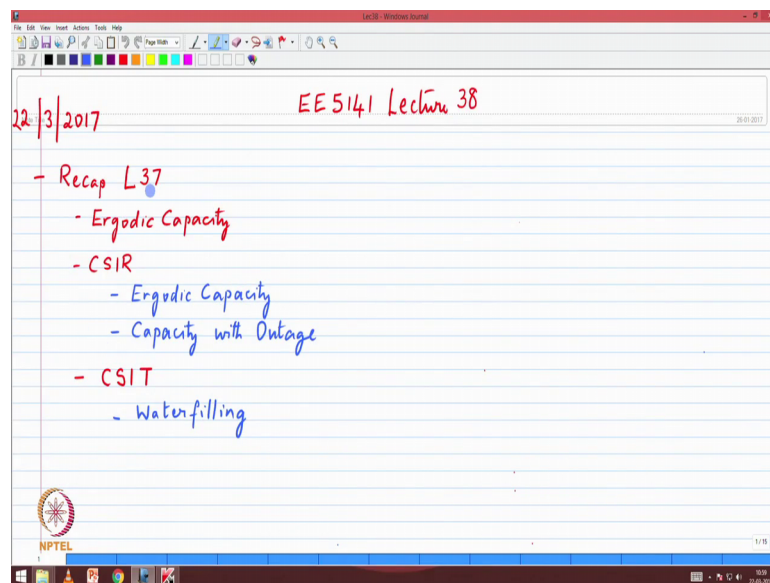 Lec38 - Windows Journal
File Edit View Insert Actions Tools Help
Page Width
EE5141 Lecture 38
22/3/2017
26-01-2017
- Recap L37
- Ergodic Capacity
- CSIR
- Ergodic Capacity
- Capacity with Outage
- CSIT
- Waterfilling
NPTEL
1/15
10:59